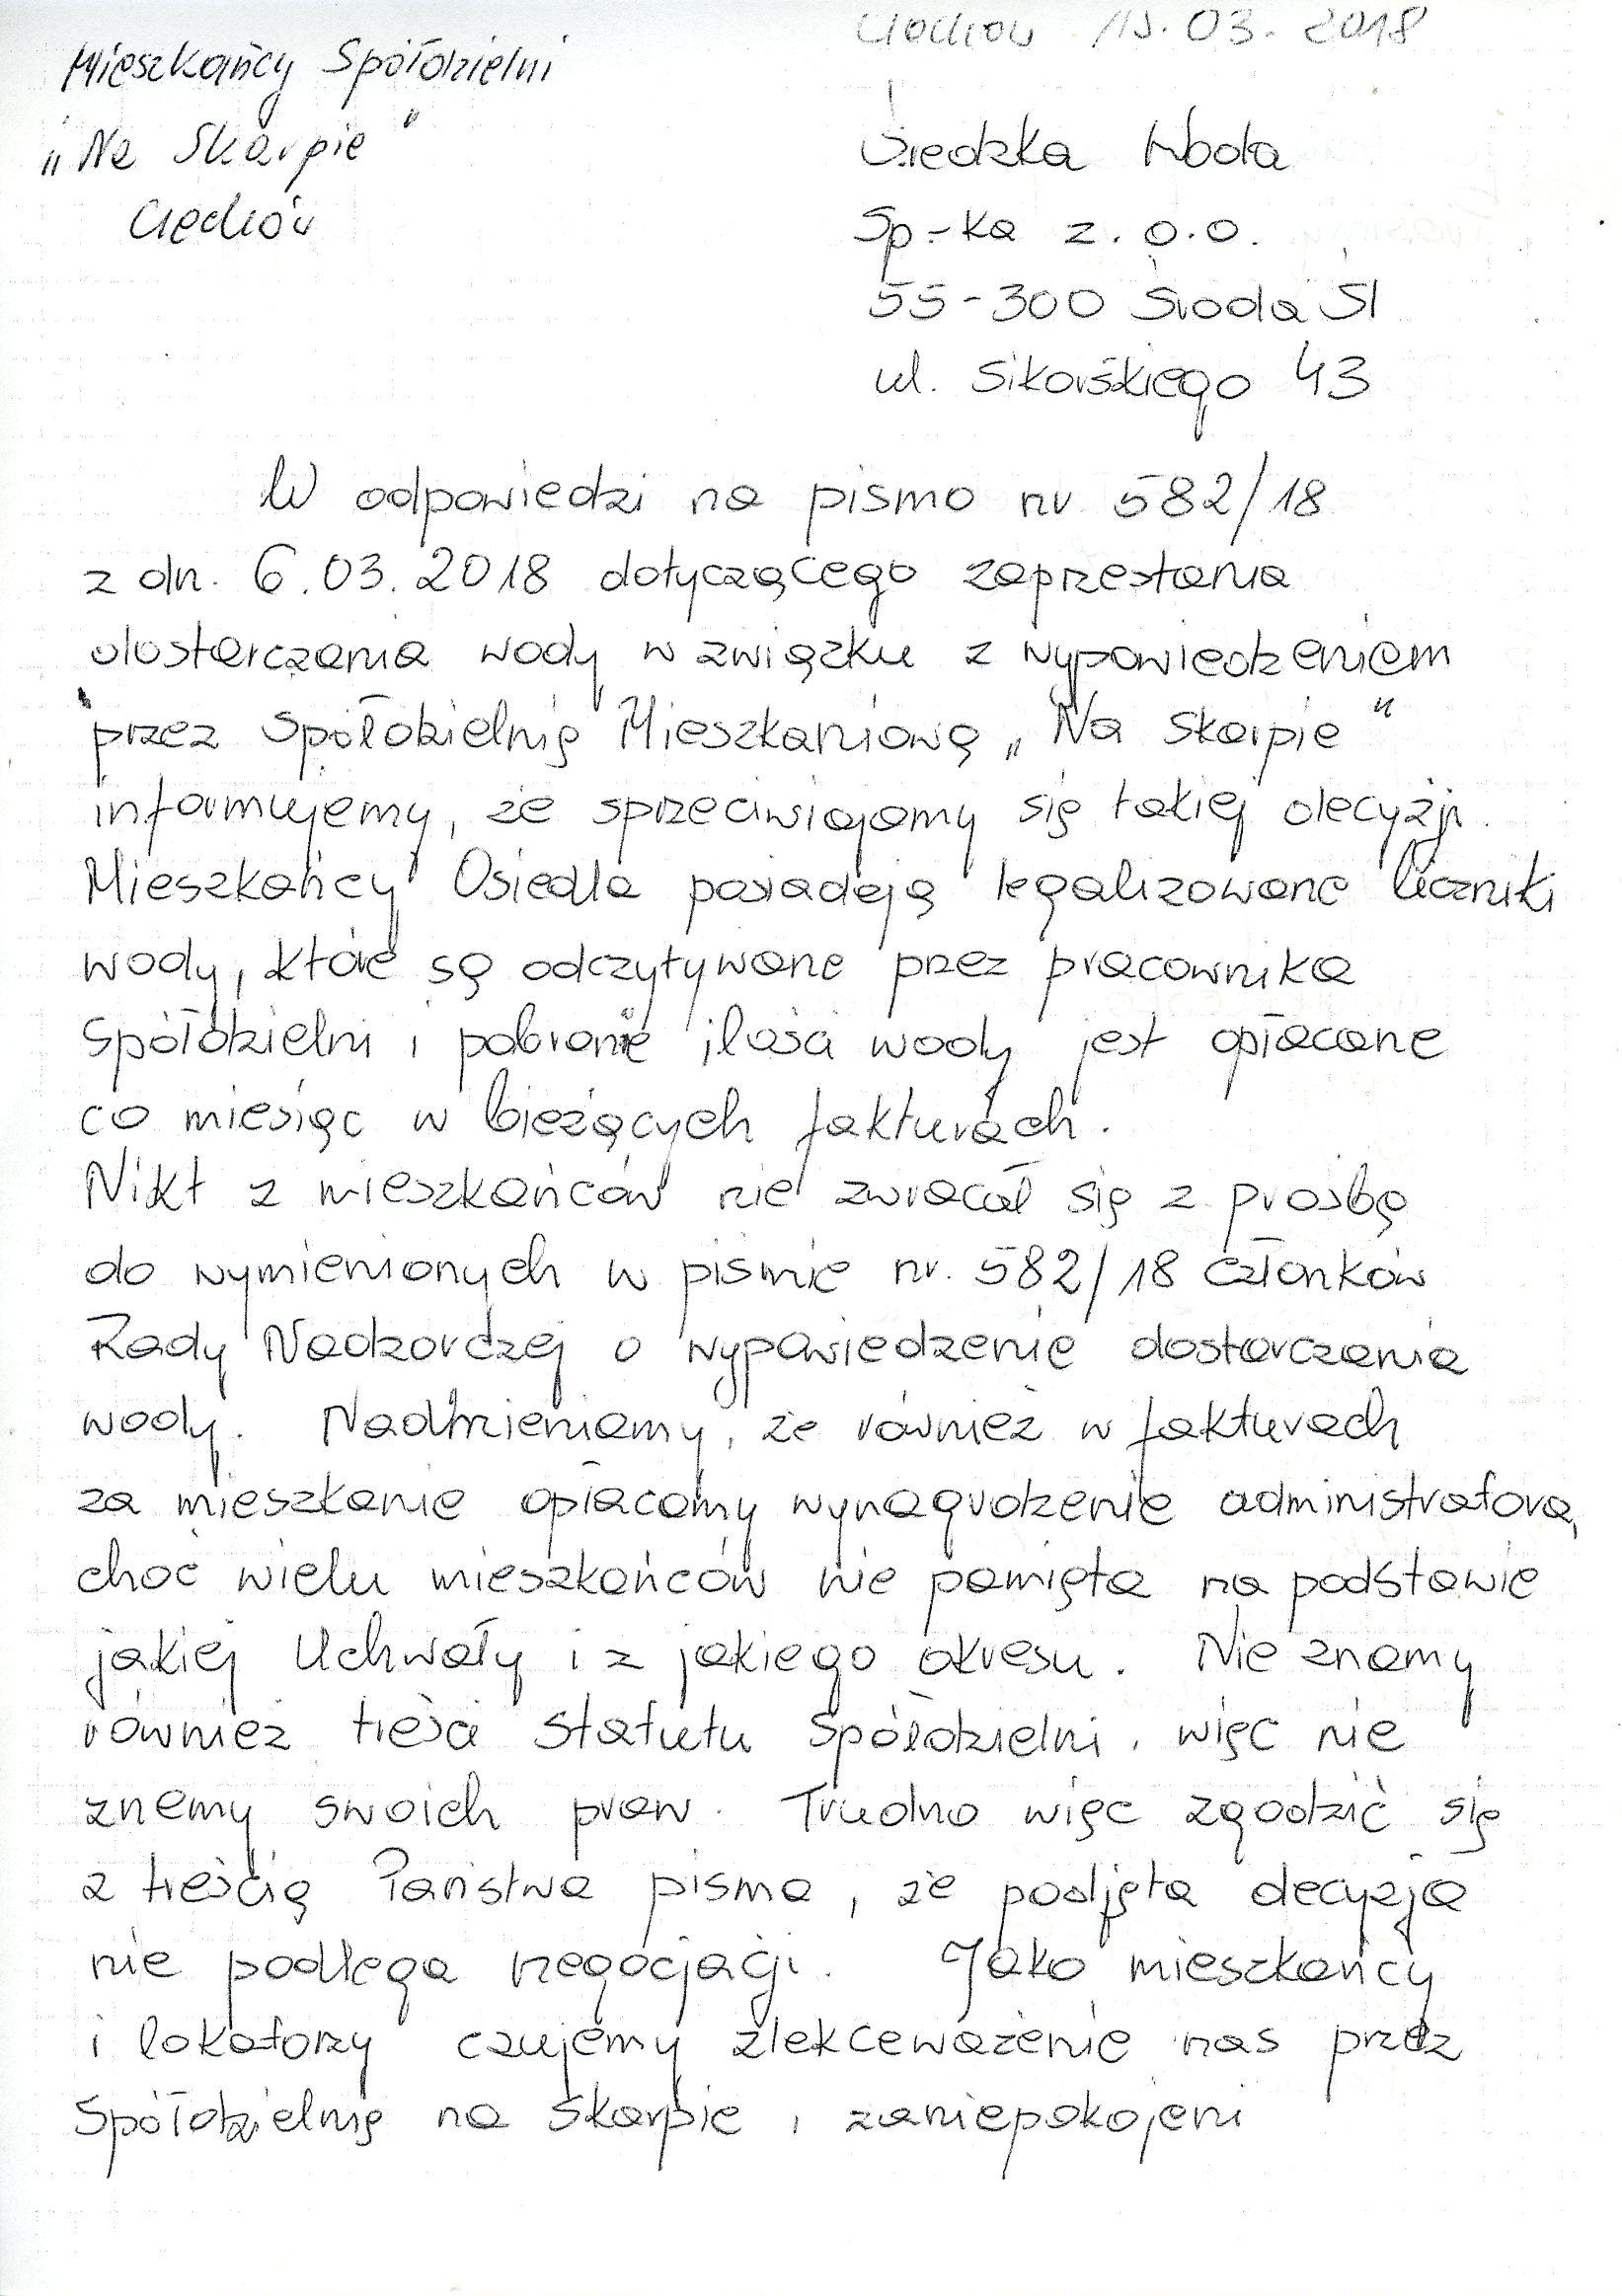 Ciechów 15.03.2018
Mieszkańcy Spółdzielni
„Na Skarpie"
Ciechów
Średzka Woda
Sp-ka z.o.o.
55-300 Środa Śl
ul. Sikorskiego 43
W odpowiedzi na pismo nr 582/18
z dn. 6.03.2018 dotyczącego zaprzestania
dostarczania wody w związku z wypowiedzeniem
przez Spółdzielnię Mieszkaniową „Na Skarpie"
informujemy, że sprzeciwiajamy się takiej decyzji.
Mieszkańcy Osiedla posiadają legalizowane liczniki
wody, które są odczytywane przez pracownika
Spółdzielni i pobranie ilości wody jest opłacane
co miesiąc w bieżących fakturach.
Nikt z mieszkańców nie zwracał się z prośbą
do wymienionych w piśmie nr. 582/18 członków
Rady Nadzorczej o wypowiedzenie dostarczania
wody. Nadmieniamy, że również w fakturach
za mieszkanie opłacamy wynagrodzenie administratora,
choć wielu mieszkańców nie pamięta na podstawie
jakiej Uchwały i z jakiego okresu. Nie znamy
również treści Statutu Spółdzielni, więc nie
znamy swoich praw. Trudno więc zgodzić się
z treścią Państwa pisma, że podjęta decyzja
nie podlega negocjacji. Jako mieszkańcy
i lokatorzy czujemy zlekceważenie nas przez
Spółdzielnię na Skarpie i zaniepokojeni